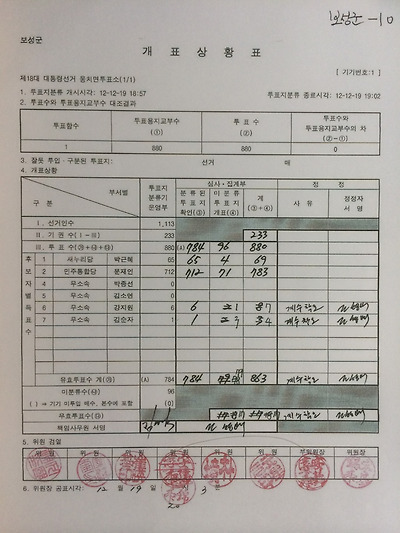 보성군-10
보성군
개 표 상 황 표
[ 기기번호:1 ]
제18대 대통령선거 웅치면투표소(1/1)
1. 투표지분류 개시시각: 12-12-19 18:57 투표지분류 종료시각: 12-12-19 19:02
2. 투표수와 투표용지교부수 대조결과
투표함수 투표용지교부수 (①) 투 표 수 (②) 투표수와 투표용지교부수의 차 (②-①)
1 880 880 0
3. 잘못 투입ㆍ구분된 투표지: 선거 매
4. 개표상황
구 분 부서별 투표지 분류기 운영부 심사ㆍ집계부 정 정
분류된 투표지 확인(③) 미분류 투표지 개표(④) 계 (③+④) 사 유 정정자 서 명
Ⅰ. 선거인수 1,113
Ⅱ. 기 권 수 (Ⅰ-Ⅲ) 233 233
Ⅲ. 투 표 수 880 (A) 784 96 880
후보자별득표수
1 새누리당 박근혜 65 65 4 69
2 민주통합당 문재인 712 712 71 783
4 무소속 박종선 0
5 무소속 김소연 0
6 무소속 강지원 6 6 1 7
7 무소속 김순자 1 1 3 4
유효투표수 계 (A) 784 784 863
미분류수 96
( ) → 기기 미투입 매수, 본수에 포함 0
무효투표수
책임사무원 서명
5. 위원 검열
위 원 위 원 위 원 위 원 위 원 위 원 위 원 부위원장 위 원 장
6. 위원장 공표시각: 12 월 19 일 시 분